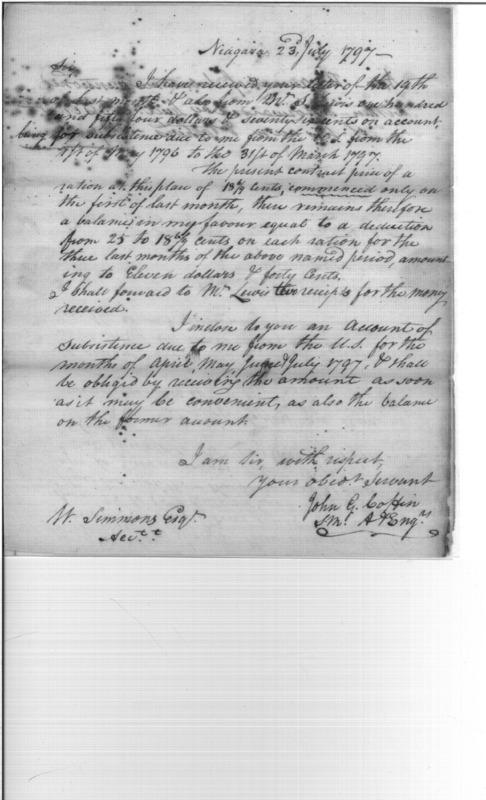 Niagara 23d, July 1797—
Sir
I have received your letter of the 19th
of last month & also from Mr. Lewis one hundred
and fifty four dollars & seventy six cents on account,
being for subsistence due to me from the U.S. from the
1st of May 1796 to the 31st of March 1797.
The present contract price of a
ration at this place of 18 6/9 cents, commenced only on
the first of last month, there remains therefore
a balance in my favour equal to a deduction
from 25 to 18 6/9 cents, on each ration for the
three last months of the above named period, amount-
ing to Eleven dollars & forty Cents.
I shall forward to Mr. Lewis receipts for the money
received.
I inclose to you an Account of
Subsistence due to me from the U.S. for the
months of April, May, June & July 1797, & shall
be obliged by receiving the amount as soon
as it may be convenient, as also the balance
on the former account.
I am Sir, with respect,
Your obedt. Servant
John G. Coffin
A & Engrs
W. Simmons Esqr.